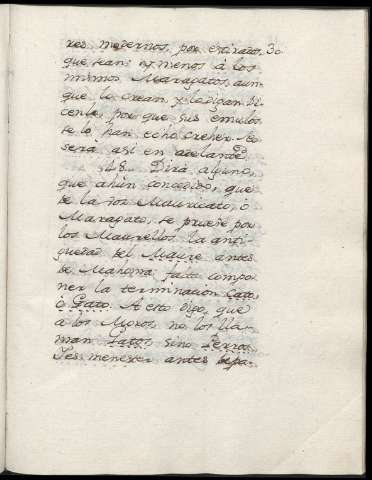 res modernos, por extraños, 30
que sean: ex menos à los
mismos Maragatos, aun-
que lo crean, y lo digan di-
cente, por que sus emulos
se lo han echo creher. No
será asi en adelante.
48. Dirá alguno,
que ahún concedido, que
de la voz Mauricato, ò
Maragato, se pruebe por
los Maurellos la anti-
guedad del Maure antes
de Mahoma; falta compo-
ner la terminacion Cato,
ò Gato. A esto digo, que
à los Moros no los lla-
man Gatos, sino Perros.
Y es menester antes sepa-